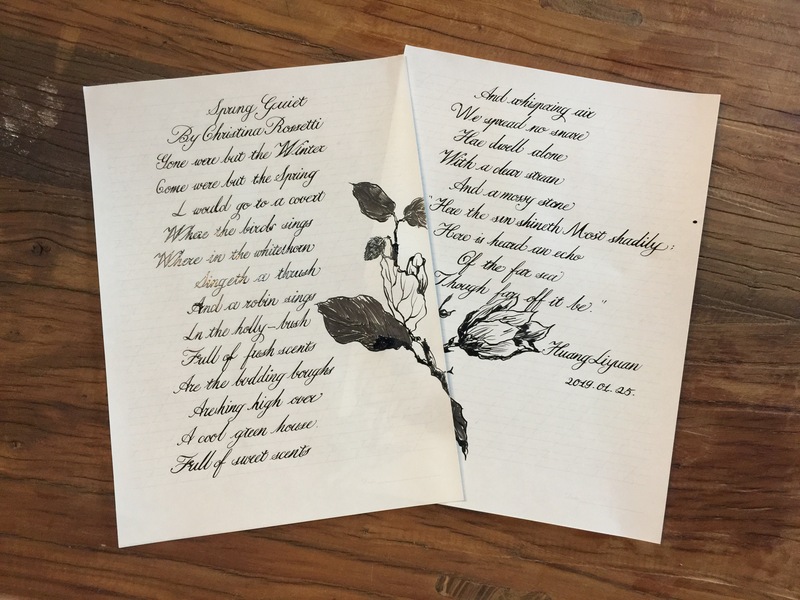 Spring Quiet
By Christina Rossetti
Gone were but the Winter
Come were but the Spring
I would go to a covert
Where the birds sings
Where in the whitethorn
Singeth a thrush
And a robin sings
In the holly-bush
Full of fresh scents
Are the budding boughs
Arching high over
A cool green house.
Full of sweet scents
And whispering air
We spread no snare
Here dwell alone
With a clear stream
And a mossy stone
"Here the sun shineth Most shadily;
Here is heard an echo
Of the far sea
Though far off it be."
Huang Liyuan
2019.01.25.